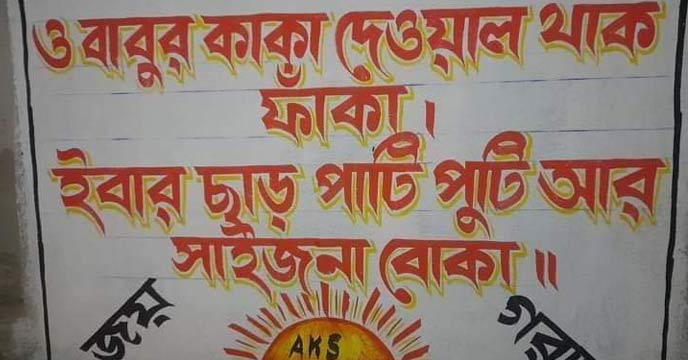 ও বাবুর কাকা দেওয়াল থাক
ফাঁকা।
ইবার ছাড় পার্টি পুর্টি আর
সাইজনা বোকা॥
জয়
গরাম
AKS